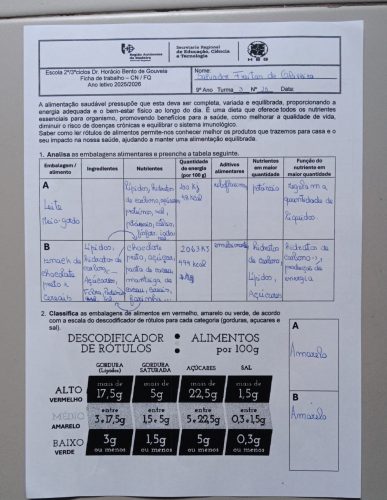 Região Autónoma da Madeira
Secretaria Regional de Educação, Ciência e Tecnologia
HBG
Escola 2º/3ºciclos Dr. Horácio Bento de Gouveia
Ficha de trabalho – CN / FQ
Ano letivo 2025/2026
Nome: Salvador Freitas de
9º Ano Turma 3 Nº Data:
A alimentação saudável pressupõe que esta deva ser completa, variada e equilibrada, proporcionando a
energia adequada e o bem-estar físico ao longo do dia. É uma dieta que oferece todos os nutrientes
essenciais para organismo, promovendo benefícios para a saúde, como melhorar a qualidade de vida,
diminuir o risco de doenças crónicas e equilibrar o sistema imunológico.
Saber como ler rótulos de alimentos permite-nos conhecer melhor os produtos que trazemos para casa e o
seu impacto na nossa saúde, ajudando a manter uma alimentação equilibrada.
1. Analisa as embalagens alimentares e preenche a tabela seguinte.
Embalagem / alimento
Ingredientes
Nutrientes
Quantidade de energia (por 100 g)
Aditivos alimentares
Nutrientes em maior quantidade
Função do nutriente em maior quantidade
A
Leite
Meio-gordo
lípidos, hidratos
de carbono, açúcares
potássio, cálcio,
potássio
regula a
quantidade de
líquidos
B
chocolate
preto e
Cereais
Lípidos,
hidratos de
carbono
Açúcares
chocolate
preto, açúcar,
manteiga de
cacau,
farinha
2063 KJ
hidratos
de
carbono
Lípidos,
Açúcares
hidratos de
carbono ->
produção de
energia
2. Classifica as embalagens de alimentos em vermelho, amarelo ou verde, de acordo
com a escala do descodificador de rótulos para cada categoria (gorduras, açucares e
sal).
DESCODIFICADOR DE RÓTULOS : ALIMENTOS por 100g
GORDURA (Lípidos) GORDURA SATURADA AÇÚCARES SAL
ALTO VERMELHO mais de 17,5g mais de 5g mais de 22,5g mais de 1,5g
MÉDIO AMARELO entre 3 e 17,5g entre 1,5 e 5g entre 5 e 22,5g entre 0,3 e 1,5g
BAIXO VERDE 3g ou menos 1,5g ou menos 5g ou menos 0,3g ou menos
A
Amarelo
B
Amarelo